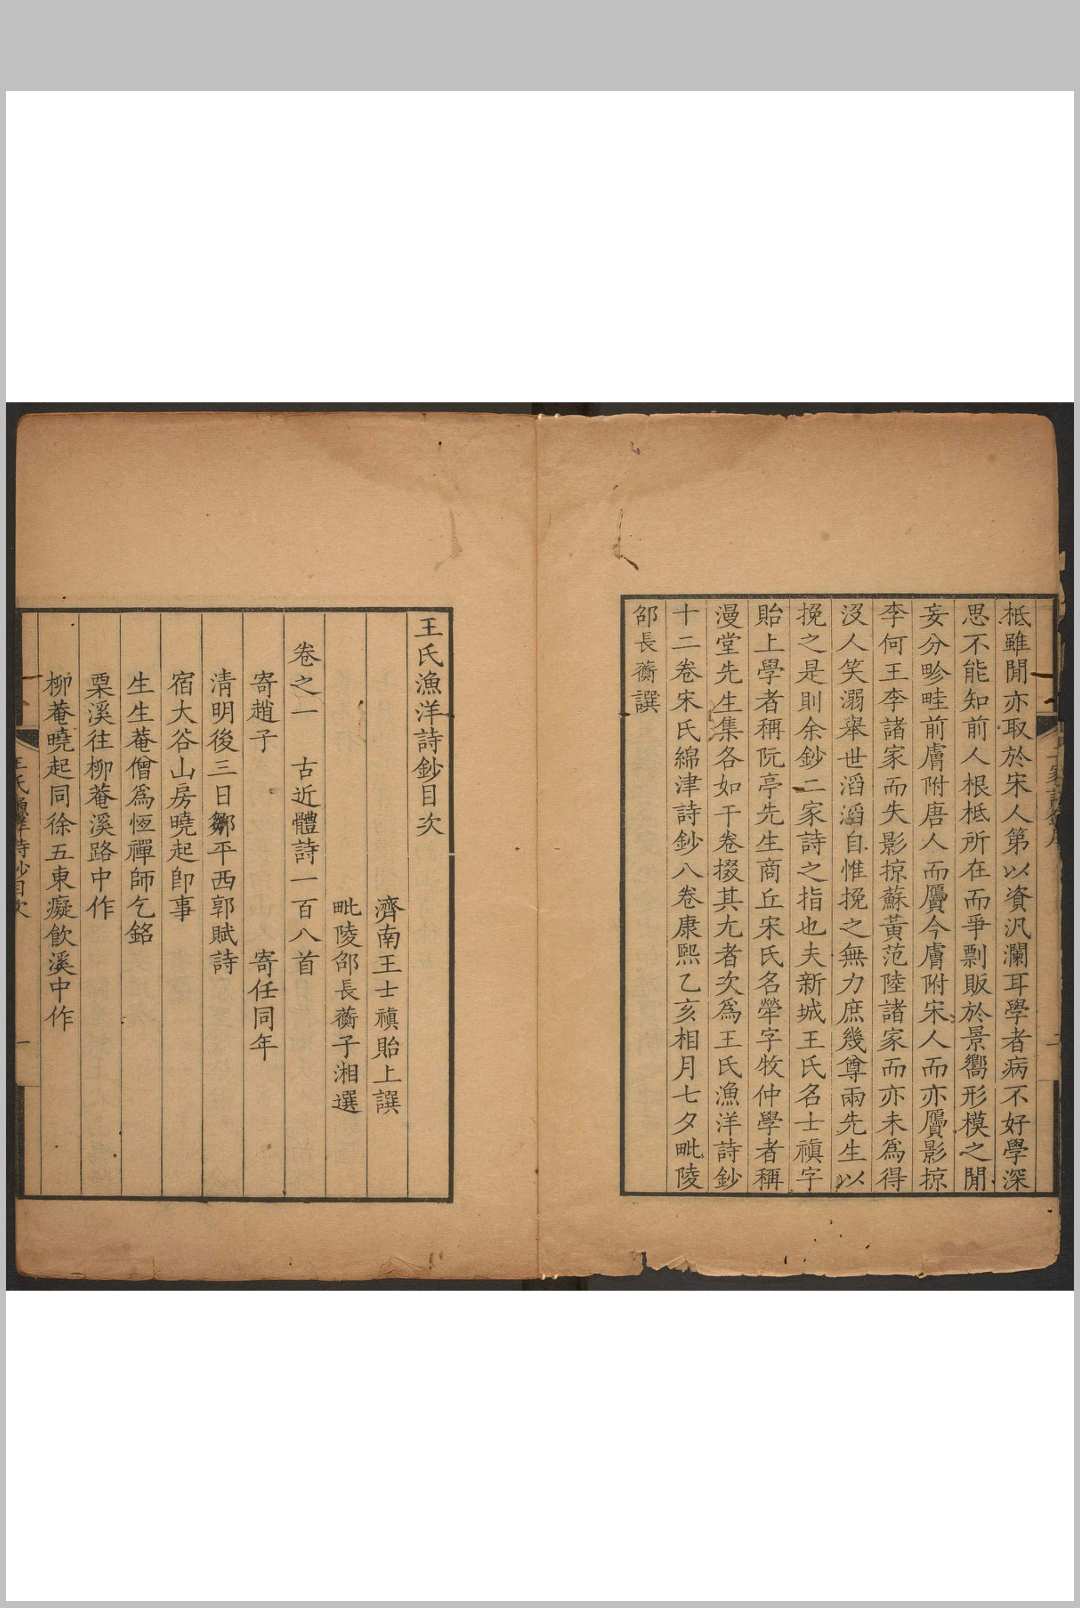 柢雖閒亦取於宋人第以資汎瀾耳學者病不好學深
思不能知前人根柢所在而爭剽販於景嚮形模之閒
妄分畛畦前膚附唐人而贗今膚附宋人而亦贗影掠
李何王李諸家而失影掠蘇黃范陸諸家而亦未爲得
沒人笑溺舉世滔滔自惟挽之無力庶幾尊兩先生以
挽之是則余鈔二家詩之指也夫新城王氏名士禛字
貽上學者稱阮亭先生商丘宋氏名犖字牧仲學者稱
漫堂先生集各如干卷掇其尤者次爲王氏漁洋詩鈔
十二卷宋氏綿津詩鈔八卷康熙乙亥相月七夕毗陵
邵長蘅譔
王氏漁洋詩鈔目次
濟南王士禛貽上譔
毗陵邵長蘅子湘選
卷之一 古近體詩一百八首
寄趙子 寄任同年
清明後三日鄒平西郭賦詩
宿大谷山房曉起卽事
生生菴僧爲恆禪師乞銘
栗溪往柳菴溪路中作
柳菴曉起同徐五東癡飮溪中作
王氏漁洋詩鈔目次 一